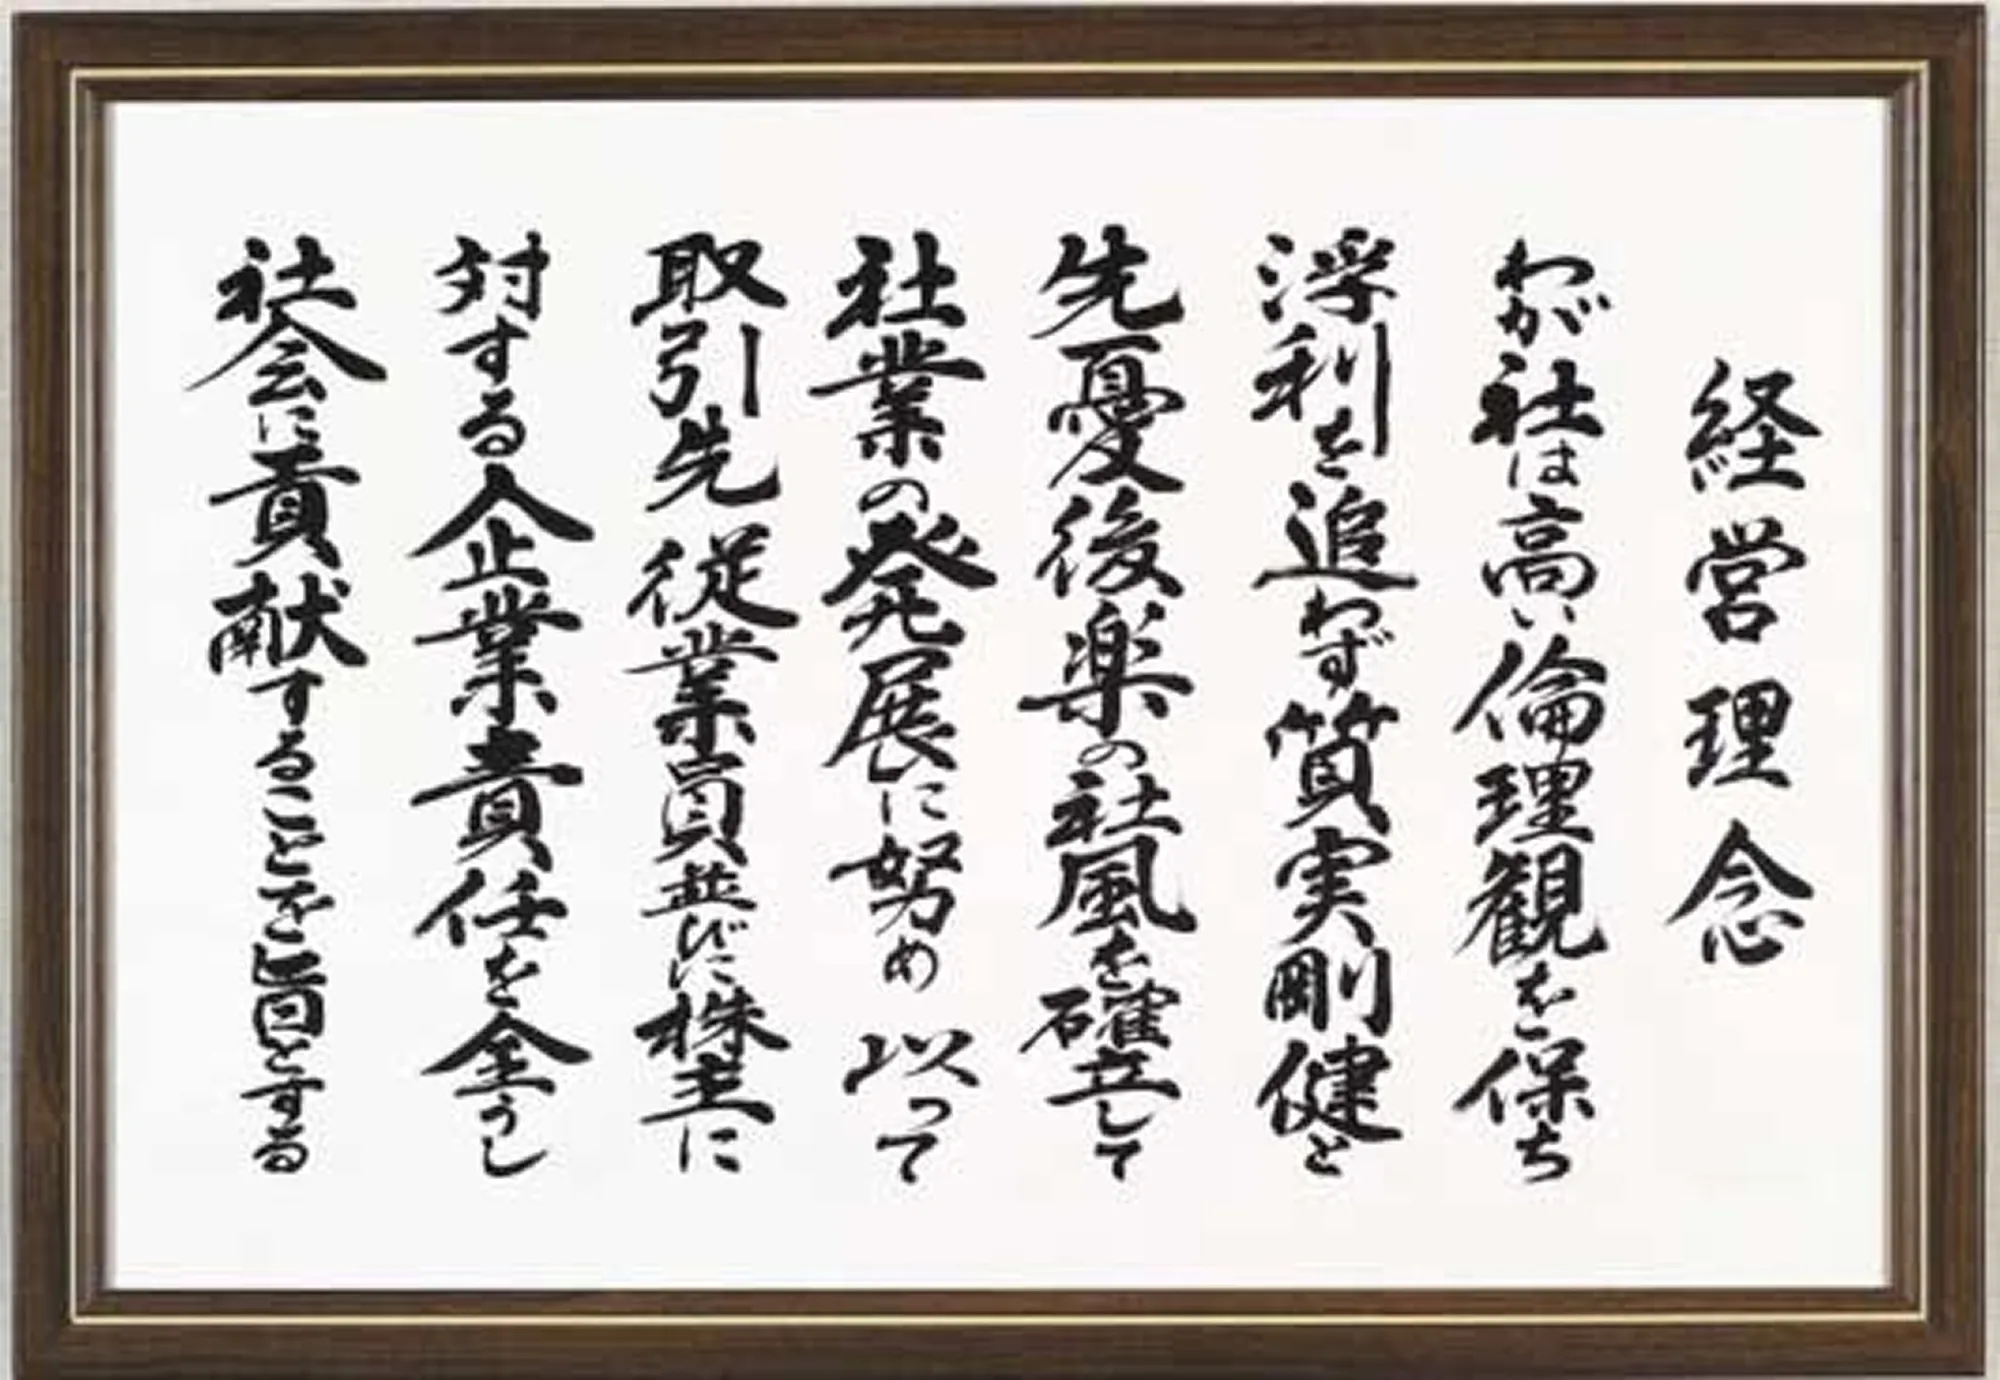 経営理念
わが社は高い倫理観を保ち
浮利を追わず質実剛健と
先憂後楽の社風を確立して
社業の発展に努め 以って
取引先 従業員並びに株主に
対する企業責任を全うし
社会に貢献することを旨とする